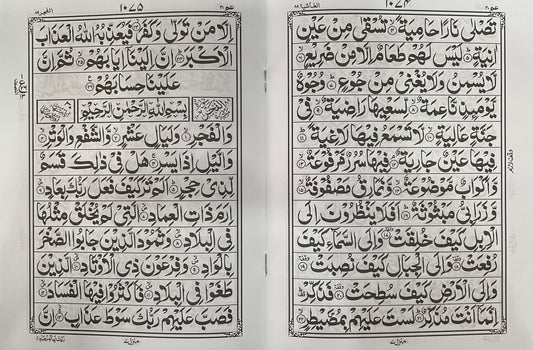 الغاشية ٨٨ ١٠٧٤
تَصْلٰى نَارًا حَامِيَةً ۙ﴿۴﴾ تُسْقٰى مِنْ عَيْنٍ
اٰنِيَةٍ ؕ﴿۵﴾ لَيْسَ لَهُمْ طَعَامٌ اِلَّا مِنْ ضَرِيْعٍ ۙ﴿۶﴾
لَّا يُسْمِنُ وَلَا يُغْنِيْ مِنْ جُوْعٍ ؕ﴿۷﴾ وُجُوْهٌ
يَّوْمَئِذٍ نَّاعِمَةٌ ۙ﴿۸﴾ لِّسَعْيِهَا رَاضِيَةٌ ۙ﴿۹﴾ فِيْ
جَنَّةٍ عَالِيَةٍ ۙ﴿۱۰﴾ لَّا تَسْمَعُ فِيْهَا لَاغِيَةً ؕ﴿۱۱﴾
فِيْهَا عَيْنٌ جَارِيَةٌ ۘ﴿۱۲﴾ فِيْهَا سُرُرٌ مَّرْفُوْعَةٌ ۙ﴿۱۳﴾
وَّاَكْوَابٌ مَّوْضُوْعَةٌ ۙ﴿۱۴﴾ وَّنَمَارِقُ مَصْفُوْفَةٌ ۙ﴿۱۵﴾
وَّزَرَابِيُّ مَبْثُوْثَةٌ ؕ﴿۱۶﴾ اَفَلَا يَنْظُرُوْنَ اِلَى
الْاِبِلِ كَيْفَ خُلِقَتْ ﴿۱۷﴾ وَاِلَى السَّمَآءِ كَيْفَ
رُفِعَتْ ﴿۱۸﴾ وَاِلَى الْجِبَالِ كَيْفَ نُصِبَتْ ﴿۱۹﴾
وَاِلَى الْاَرْضِ كَيْفَ سُطِحَتْ ﴿۲۰﴾ فَذَكِّرْ
اِنَّمَاۤ اَنْتَ مُذَكِّرٌ ؕ﴿۲۱﴾ لَسْتَ عَلَيْهِمْ بِمُصَيْطِرٍ ۙ﴿۲۲﴾
منزل ٧
عم ٣٠ ١٠٧٥ الفجر ٨٩
اِلَّا مَنْ تَوَلّٰى وَكَفَرَ ۙ﴿۲۳﴾ فَيُعَذِّبُهُ اللّٰهُ الْعَذَابَ
الْاَكْبَرَ ؕ﴿۲۴﴾ اِنَّ اِلَيْنَاۤ اِيَابَهُمْ ۙ﴿۲۵﴾ ثُمَّ اِنَّ
عَلَيْنَا حِسَابَهُمْ ﴿۲۶﴾
بِسْمِ اللّٰهِ الرَّحْمٰنِ الرَّحِيْمِ
وَالْفَجْرِ ۙ﴿۱﴾ وَلَيَالٍ عَشْرٍ ۙ﴿۲﴾ وَّالشَّفْعِ وَالْوَتْرِ ۙ﴿۳﴾
وَالَّيْلِ اِذَا يَسْرِ ۚ﴿۴﴾ هَلْ فِيْ ذٰلِكَ قَسَمٌ
لِّذِيْ حِجْرٍ ؕ﴿۵﴾ اَلَمْ تَرَ كَيْفَ فَعَلَ رَبُّكَ بِعَادٍ ۙ﴿۶﴾
اِرَمَ ذَاتِ الْعِمَادِ ۙ﴿۷﴾ الَّتِيْ لَمْ يُخْلَقْ مِثْلُهَا
فِي الْبِلَادِ ۙ﴿۸﴾ وَثَمُوْدَ الَّذِيْنَ جَابُوا الصَّخْرَ
بِالْوَادِ ۙ﴿۹﴾ وَفِرْعَوْنَ ذِي الْاَوْتَادِ ۙ﴿۱۰﴾ الَّذِيْنَ
طَغَوْا فِي الْبِلَادِ ۙ﴿۱۱﴾ فَاَكْثَرُوْا فِيْهَا الْفَسَادَ ۙ﴿۱۲﴾
فَصَبَّ عَلَيْهِمْ رَبُّكَ سَوْطَ عَذَابٍ ۚ﴿۱۳﴾ اِنَّ
منزل ٧